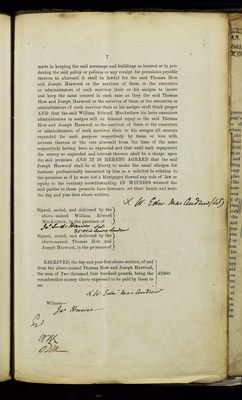 7
made in keeping the said messuage and buildings so insured or in pro-
ducing the said policy or policies or any receipt for premiums payable
thereon as aforesaid it shall be lawful for the said Thomas How
and Joseph Harwood or the survivor of them or the executors
or administrators of such survivor their or his assigns to insure
and keep the same insured in such sum as they the said Thomas
How and Joseph Harwood or the survivor of them or the executors or
administrators of such survivor their or his assigns shall think proper
AND that the said William Edward MacAndrew his heirs executors
administrators or assigns will on demand repay to the said Thomas
How and Joseph Harwood or the survivor of them or the executors
or administrators of such survivor their or his assigns all moneys
expended for such purpose respectively by them or him with
interest thereon at the rate aforesaid from the time of the same
respectively having been so expended and that until such repayment
the money so expended and interest thereon shall be a charge upon
the said premises AND IT IS HEREBY AGREED that the said
Joseph Harwood shall be at liberty to make the usual charges for
business professionally transacted by him as a solicitor in relation to
the premises as if he were not a Mortgagee thereof any rule of law or
equity to the contrary notwithstanding IN WITNESS whereof the
said parties to these presents have hereunto set their hands and seals
the day and year first above written.
Signed, sealed, and delivered by the
above-named William Edward
MacAndrew, in the presence of
Signed, sealed, and delivered by the
above-named Thomas How and
Joseph Harwood, in the presence of
RECEIVED, the day and year first above-written, of and
from the above-named Thomas How and Joseph Harwood,
the sum of Two thousand four hundred pounds, being the
consideration money above expressed to be paid by them to
me
£2400
Witness—